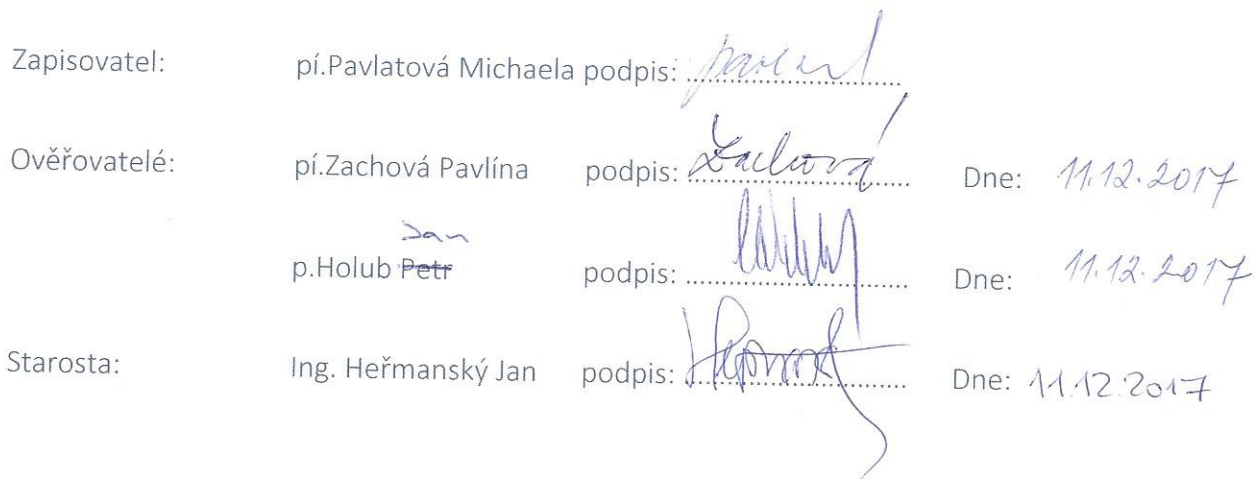 Zapisovatel: pí.Pavlatová Michaela podpis: ........................
Ověřovatelé: pí.Zachová Pavlína podpis: Zachová Dne: 11.12.2017
Jan
p.Holub Petr podpis: ........................ Dne: 11.12.2017
Starosta: Ing. Heřmanský Jan podpis: ........................ Dne: 11.12.2017